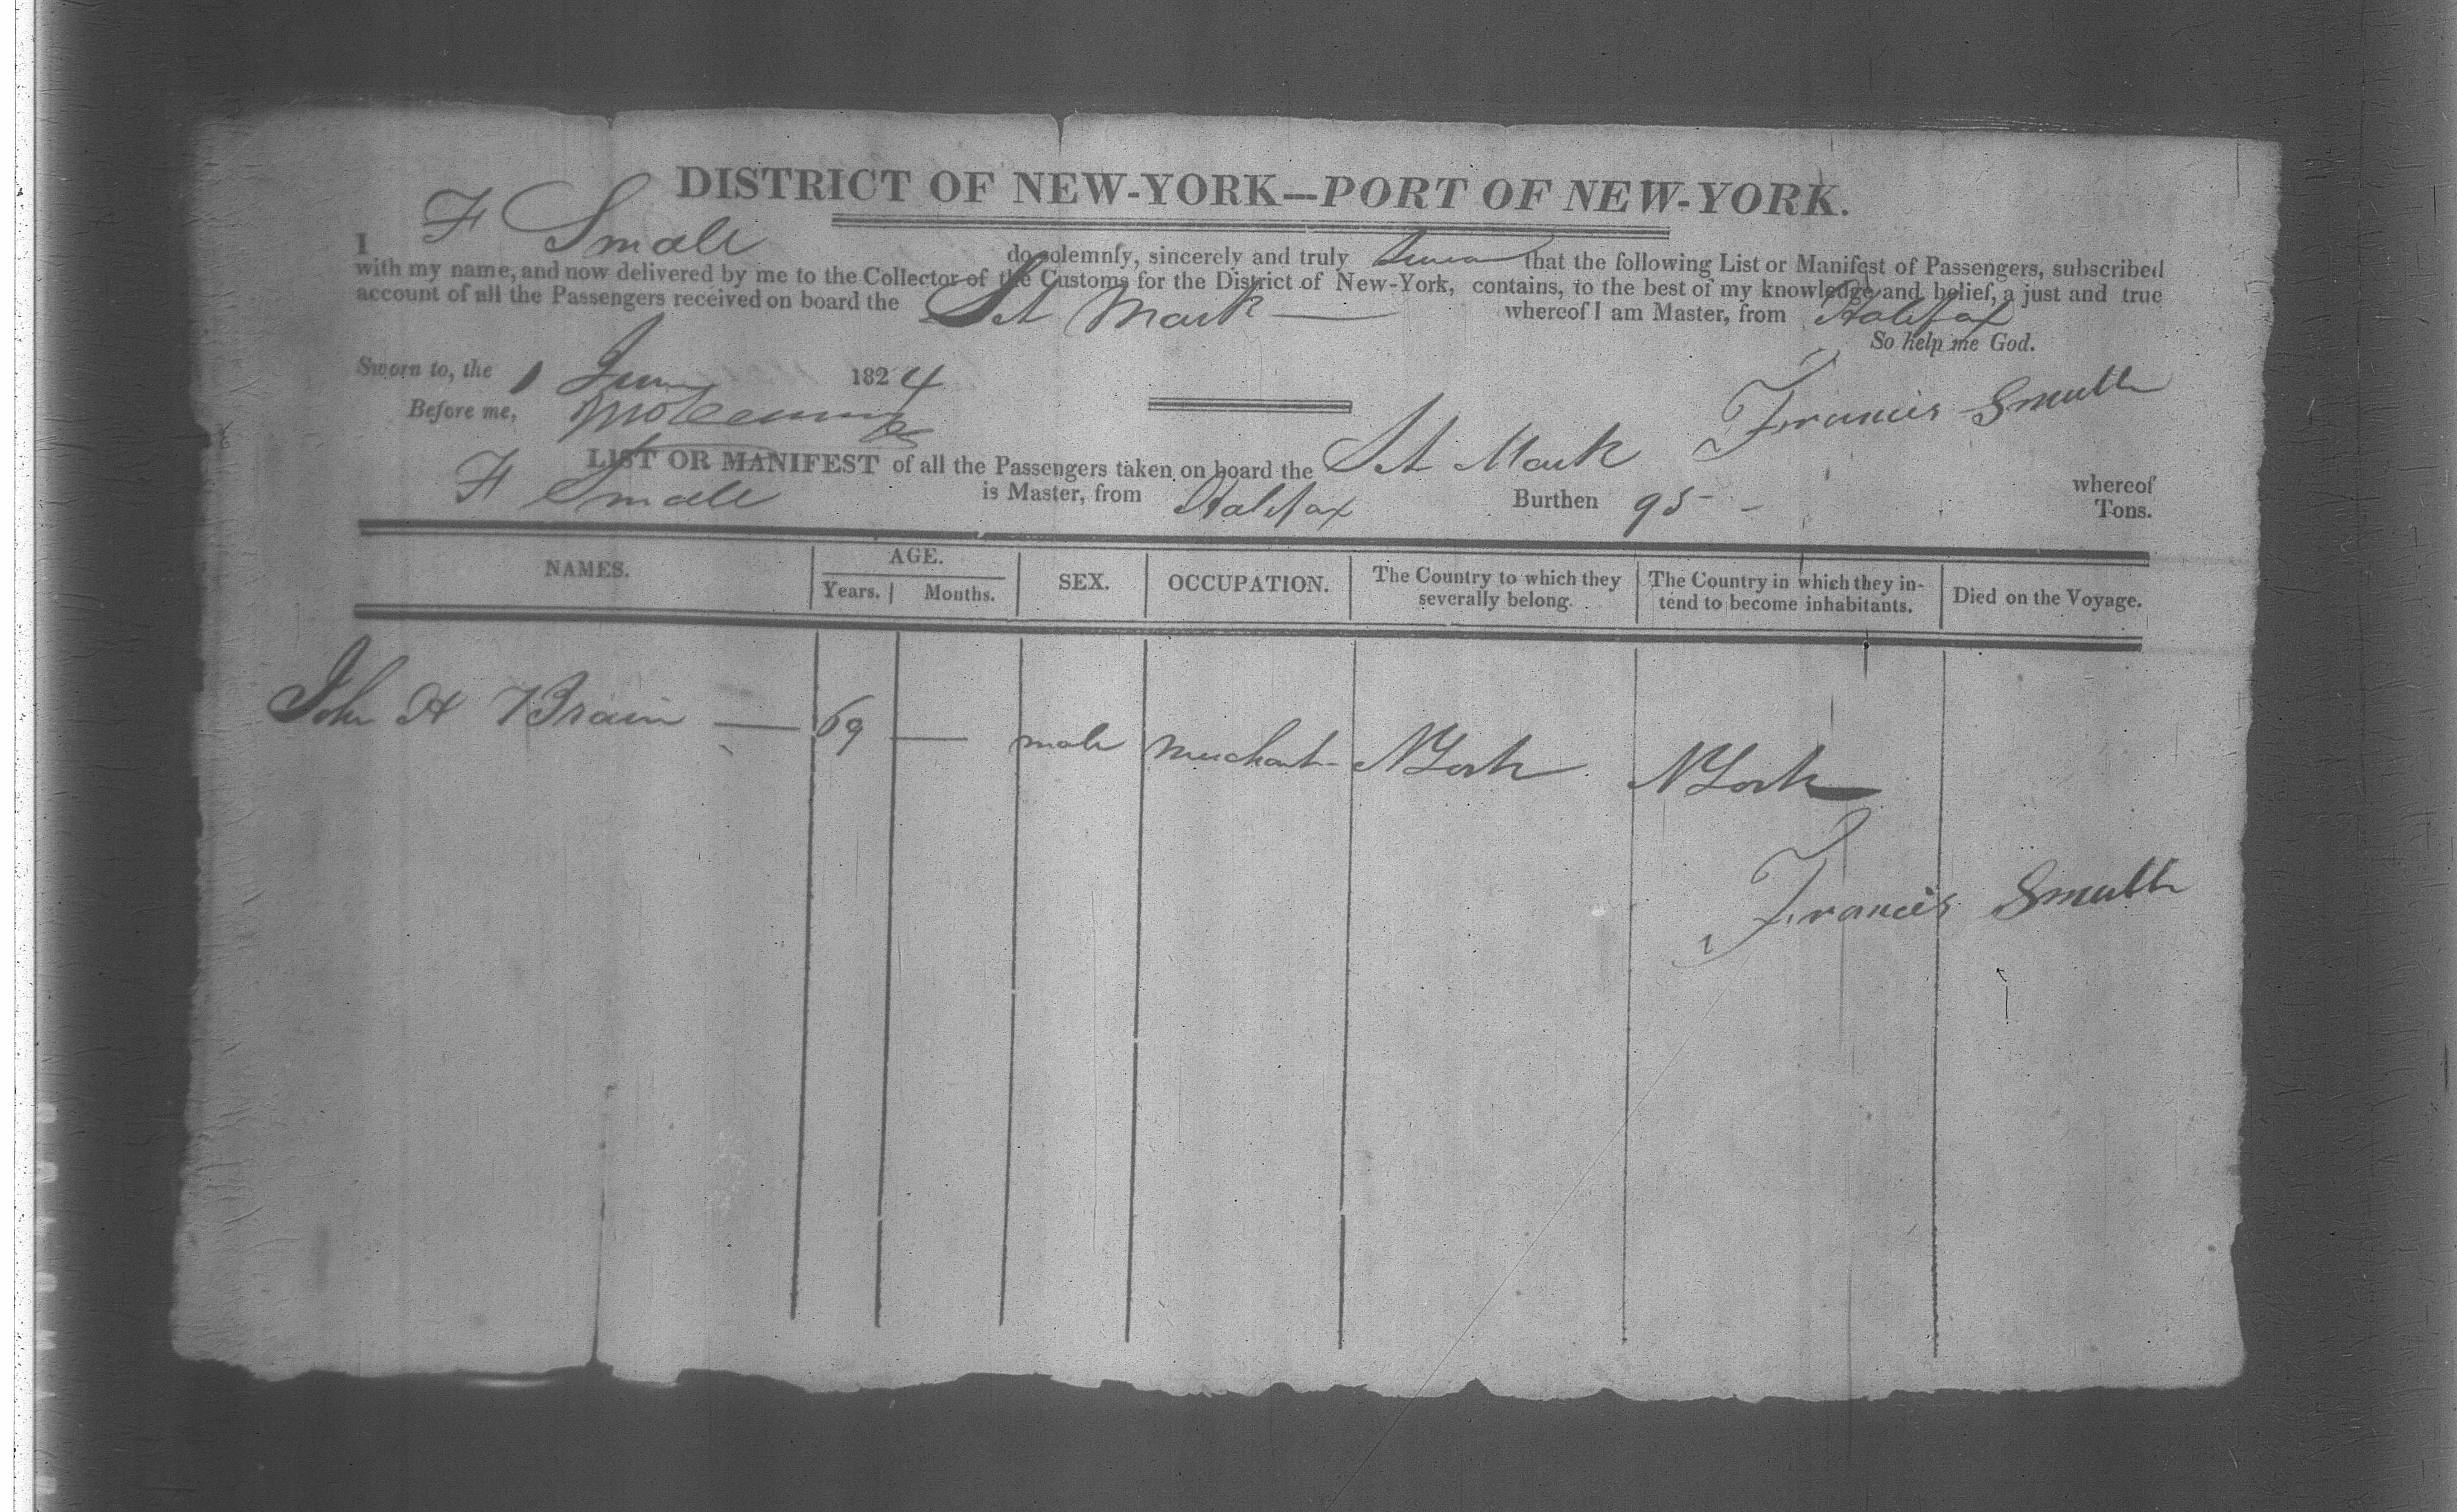 DISTRICT OF NEW-YORK—PORT OF NEW-YORK.
I F Small do solemnly, sincerely and truly that the following List or Manifest of Passengers, subscribed
with my name, and now delivered by me to the Collector of the Customs for the District of New-York, contains, to the best of my knowledge and belief, a just and true
account of all the Passengers received on board the St Mark — whereof I am Master, from Halifax
So help me God.
Sworn to, the 1 June 1824
Before me,
Francis
LIST OR MANIFEST of all the Passengers taken on board the St Mark whereof
F Small is Master, from Halifax Burthen 95 - Tons.
NAMES. AGE. SEX. OCCUPATION. The Country to which they severally belong. The Country in which they intend to become inhabitants. Died on the Voyage.
Years. Months.
John H Brain — 69 — male merchant NYork NYork
Francis